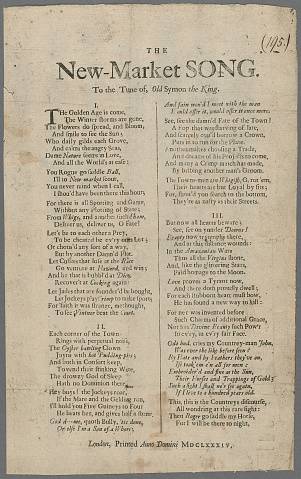 (195)
THE
New-Market SONG.
To the Tune of, Old Symon the King.
I.
THe Golden Age is come,
The Winter storms are gone,
The Flowers do spread, and Bloom,
And smile to see the Sun;
Who daily gilds each Grove,
And calms the angry Seas,
Dame Nature seems in Love,
And all the World's at ease:
You Rogue go saddle Ball,
I'll to New-market scour,
You never mind when I call,
I shou'd have been there this hour;
For there is all Sporting and Game,
Without any Plotting of State;
From Whigs, and another such Sham,
Deliver us, deliver us, O Fate!
Let's be to each other a Prey,
To be cheated be ev'ry ones Lot;
Or chous'd any sort of a way,
But by another Damn'd Plot.
Let Cullies that lose at the Race
Go venture at Hazard, and win;
And he that is bubbl'd at Dice,
Recover't at Cocking again:
Let Jades that are founder'd be bought,
Let Jockeys play Crimp to make sport;
For faith it was strange, methought,
To see Vintner beat the Court.
II.
Each corner of the Town
Rings with perpetual noise,
The Oyster-bawling Clown
Joyns with hot Pudding-pies;
And both in Consort keep,
To vend their stinking Ware,
The drowsy God of Sleep
Hath no Dominion there,
Hey boys! the Jockeys roar,
If the Mare and the Gelding run,
I'll hold you Five Guineys to Four
He beats her, and gives half a stone,
God d---me, quoth Bully, 'tis done,
Or else I'm a Son of a Whore,
And fain wou'd I meet with the man
wou'd offer it, wou'd offer it once more.
See, see the damn'd Fate of the Town!
A Fop that was starving of late,
And scarcely cou'd borrow a Crown,
Puts in to run for the Plate.
Another makes chousing a Trade,
And dreams of his Projects to come,
And many a Crimp match has made,
By bribing another man's Groom.
The Townsmen are Whiggish, G. rot 'em,
Their hearts are but Loyal by fits;
For, shou'd you search to the bottom,
They're as nasty as their Streets.
III.
But now all hearts beware!
See, see on yonder Downs!
Beauty now tryumphs there,
And at this distance wounds:
In the Amazonian Wars
Thus all the Virgins shone,
And, like the glittering Stars,
Paid homage to the Moon.
Love proves a Tyrant now,
And there doth proudly dwell;
For each stubborn heart must bow,
He has found a new way to kill:
For ne'r was invented before
Such Charms of additional Grace,
Nor has Divine Beauty such Pow'r
In ev'ry, in ev'ry fair Face.
Ods bud, cries my Countrey-man John,
Was ever the like before seen?
By Hats and by Feathers they've on,
Ise took 'em e'n all for men:
Embroider'd and fine as the Sun,
Their Horses and Trappings of Gold;
Such a sight I shall ne'r see again,
If I live to a hundred years old.
This, this is the Countreys discourse,
All wondring at this rare sight:
Then Roger go saddle my Horse,
For I will be there to night.
London, Printed Anno Domini MDCLXXXIV.